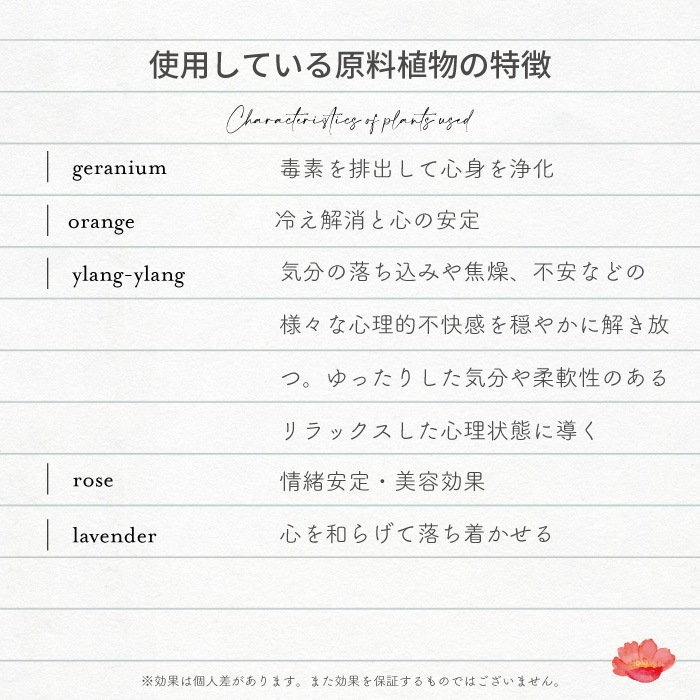 使用している原料植物の特徴
Characteristics of plants used
geranium 毒素を排出して心身を浄化
orange 冷え解消と心の安定
ylang-ylang 気分の落ち込みや焦燥、不安などの
様々な心理的不快感を穏やかに解き放
つ。ゆったりした気分や柔軟性のある
リラックスした心理状態に導く
rose 情緒安定・美容効果
lavender 心を和らげて落ち着かせる
※効果は個人差があります。また効果を保証するものではございません。